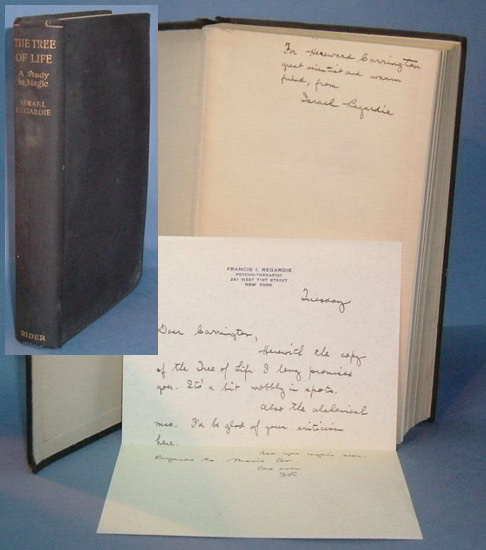 THE TREE
OF LIFE
A Study
in Magic
ISRAEL
REGARDIE
RIDER
For Hereward Carrington
great scientist and warm
friend, from
Israel Regardie
FRANCIS I. REGARDIE
PSYCHO-THERAPIST
241 WEST 71ST STREET
NEW YORK
Tuesday
Dear Carrington,
Herewith the copy
of the Tree of Life I long promised
you. It's a bit wobbly in spots.
Also the alchemical
mss. I'd be glad of your criticism
here.
to Marie too